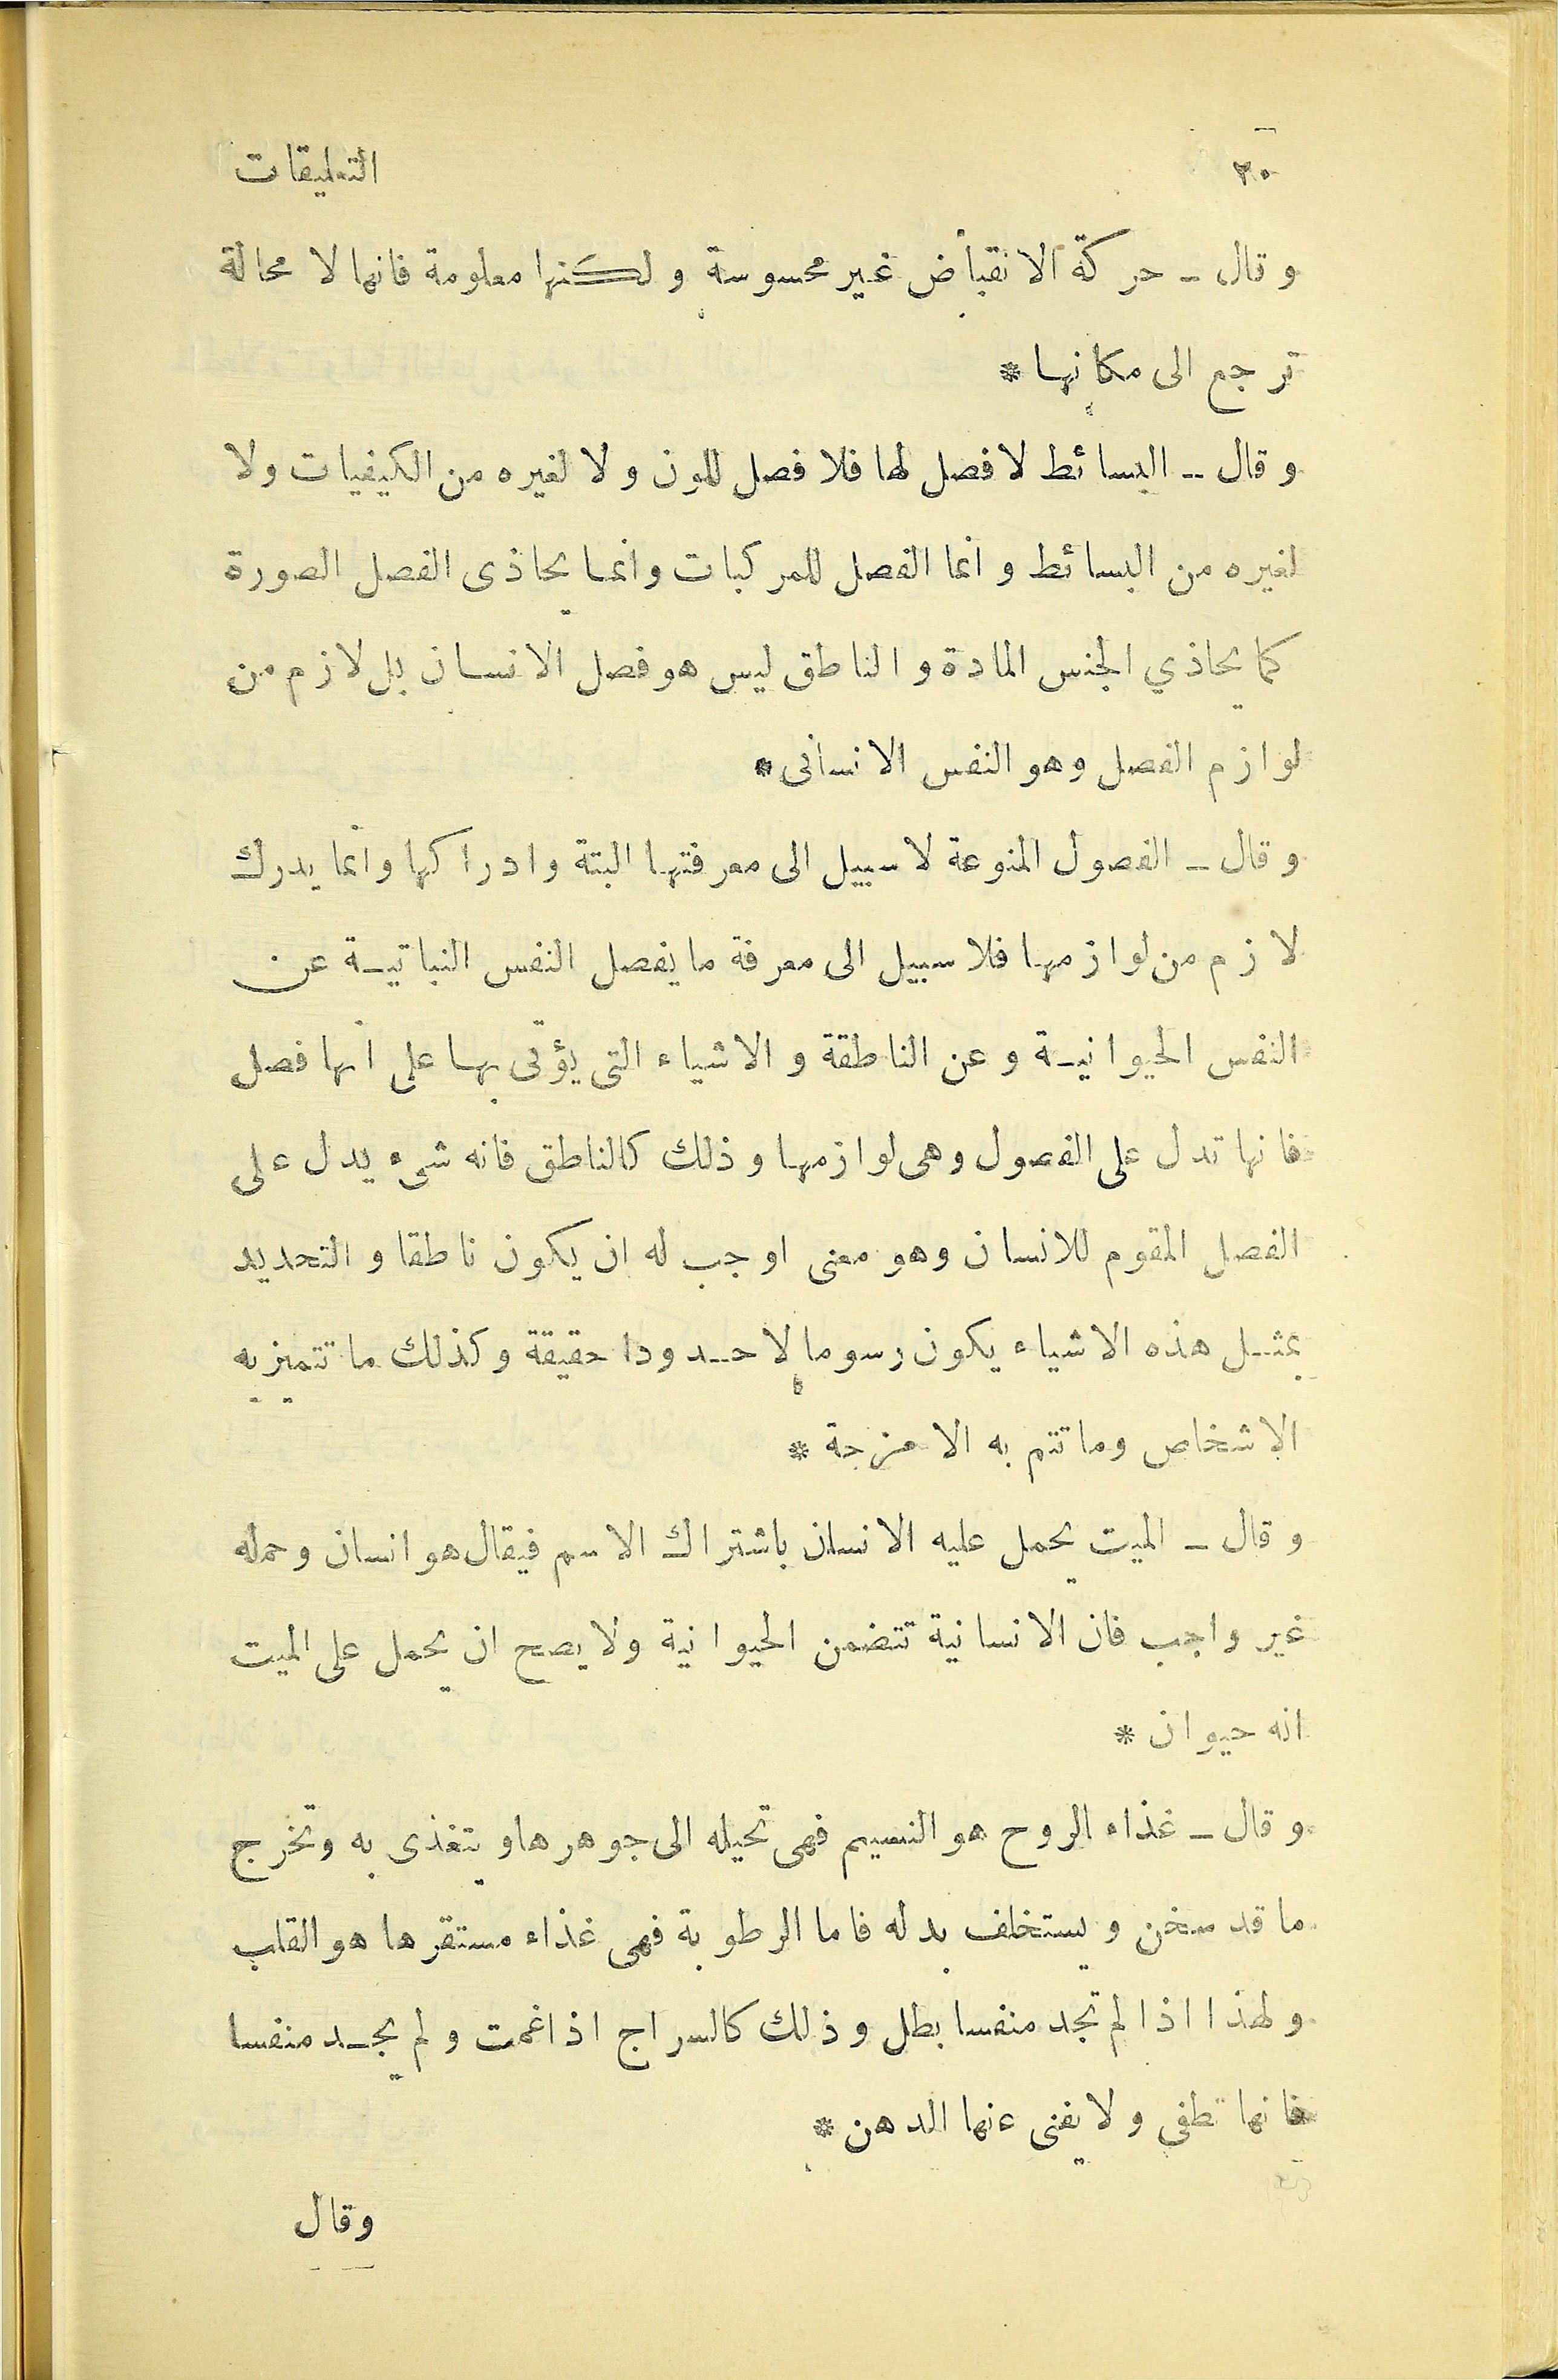 ٢٠ التعليقات
و قال ـ حركة الانقباض غير محسوسة ولكنها معلومة فانها لا محالة
ترجع الى مكانها *
و قال ـ البسائط لا فصل لها فلا فصل للون ولا لغيره من الكيفيات ولا
لغيره من البسائط و انما الفصل للمركبات وانما يحاذى الفصل الصورة
كما يحاذي الجنس المادة و الناطق ليس هو فصل الانسان بل لازم من
لوازم الفصل وهو النفس الانسانى *
و قال ـ الفصول المنوعة لا سبيل الى معرفتها البتة وادراكها وانما يدرك
لازم من لوازمها فلا سبيل الى معرفة ما يفصل النفس النباتية عن
النفس الحيوانية و عن الناطقة و الاشياء التى يؤتى بها على انها فصل
فانها تدل على الفصول وهى لوازمها و ذلك كالناطق فانه شىء يدل على
الفصل المقوم للانسان وهو معنى اوجب له ان يكون ناطقا و التحديد
بمثل هذه الاشياء يكون رسوما لا حدودا حقيقة وكذلك ما تتميز به
الاشخاص وما تتم به الامزجة *
و قال ـ الميت يحمل عليه الانسان باشتراك الاسم فيقال هو انسان وحمله
غير واجب فان الانسانية تتضمن الحيوانية ولا يصح ان يحمل على الميت
انه حيوان *
و قال ـ غذاء الروح هو النسيم فهى تحيله الى جوهرها و يتغذى به وتخرج
ما قد سخن و يستخلف بدله فاما الرطوبة فهى غذاء مستقرها هو القلب
و لهذا اذا لم تجد منفسا بطل وذلك كالسراج اذا غمت و لم يجد منفسا
فانها تطفى و لا يغنى عنها الدهن *
وقال